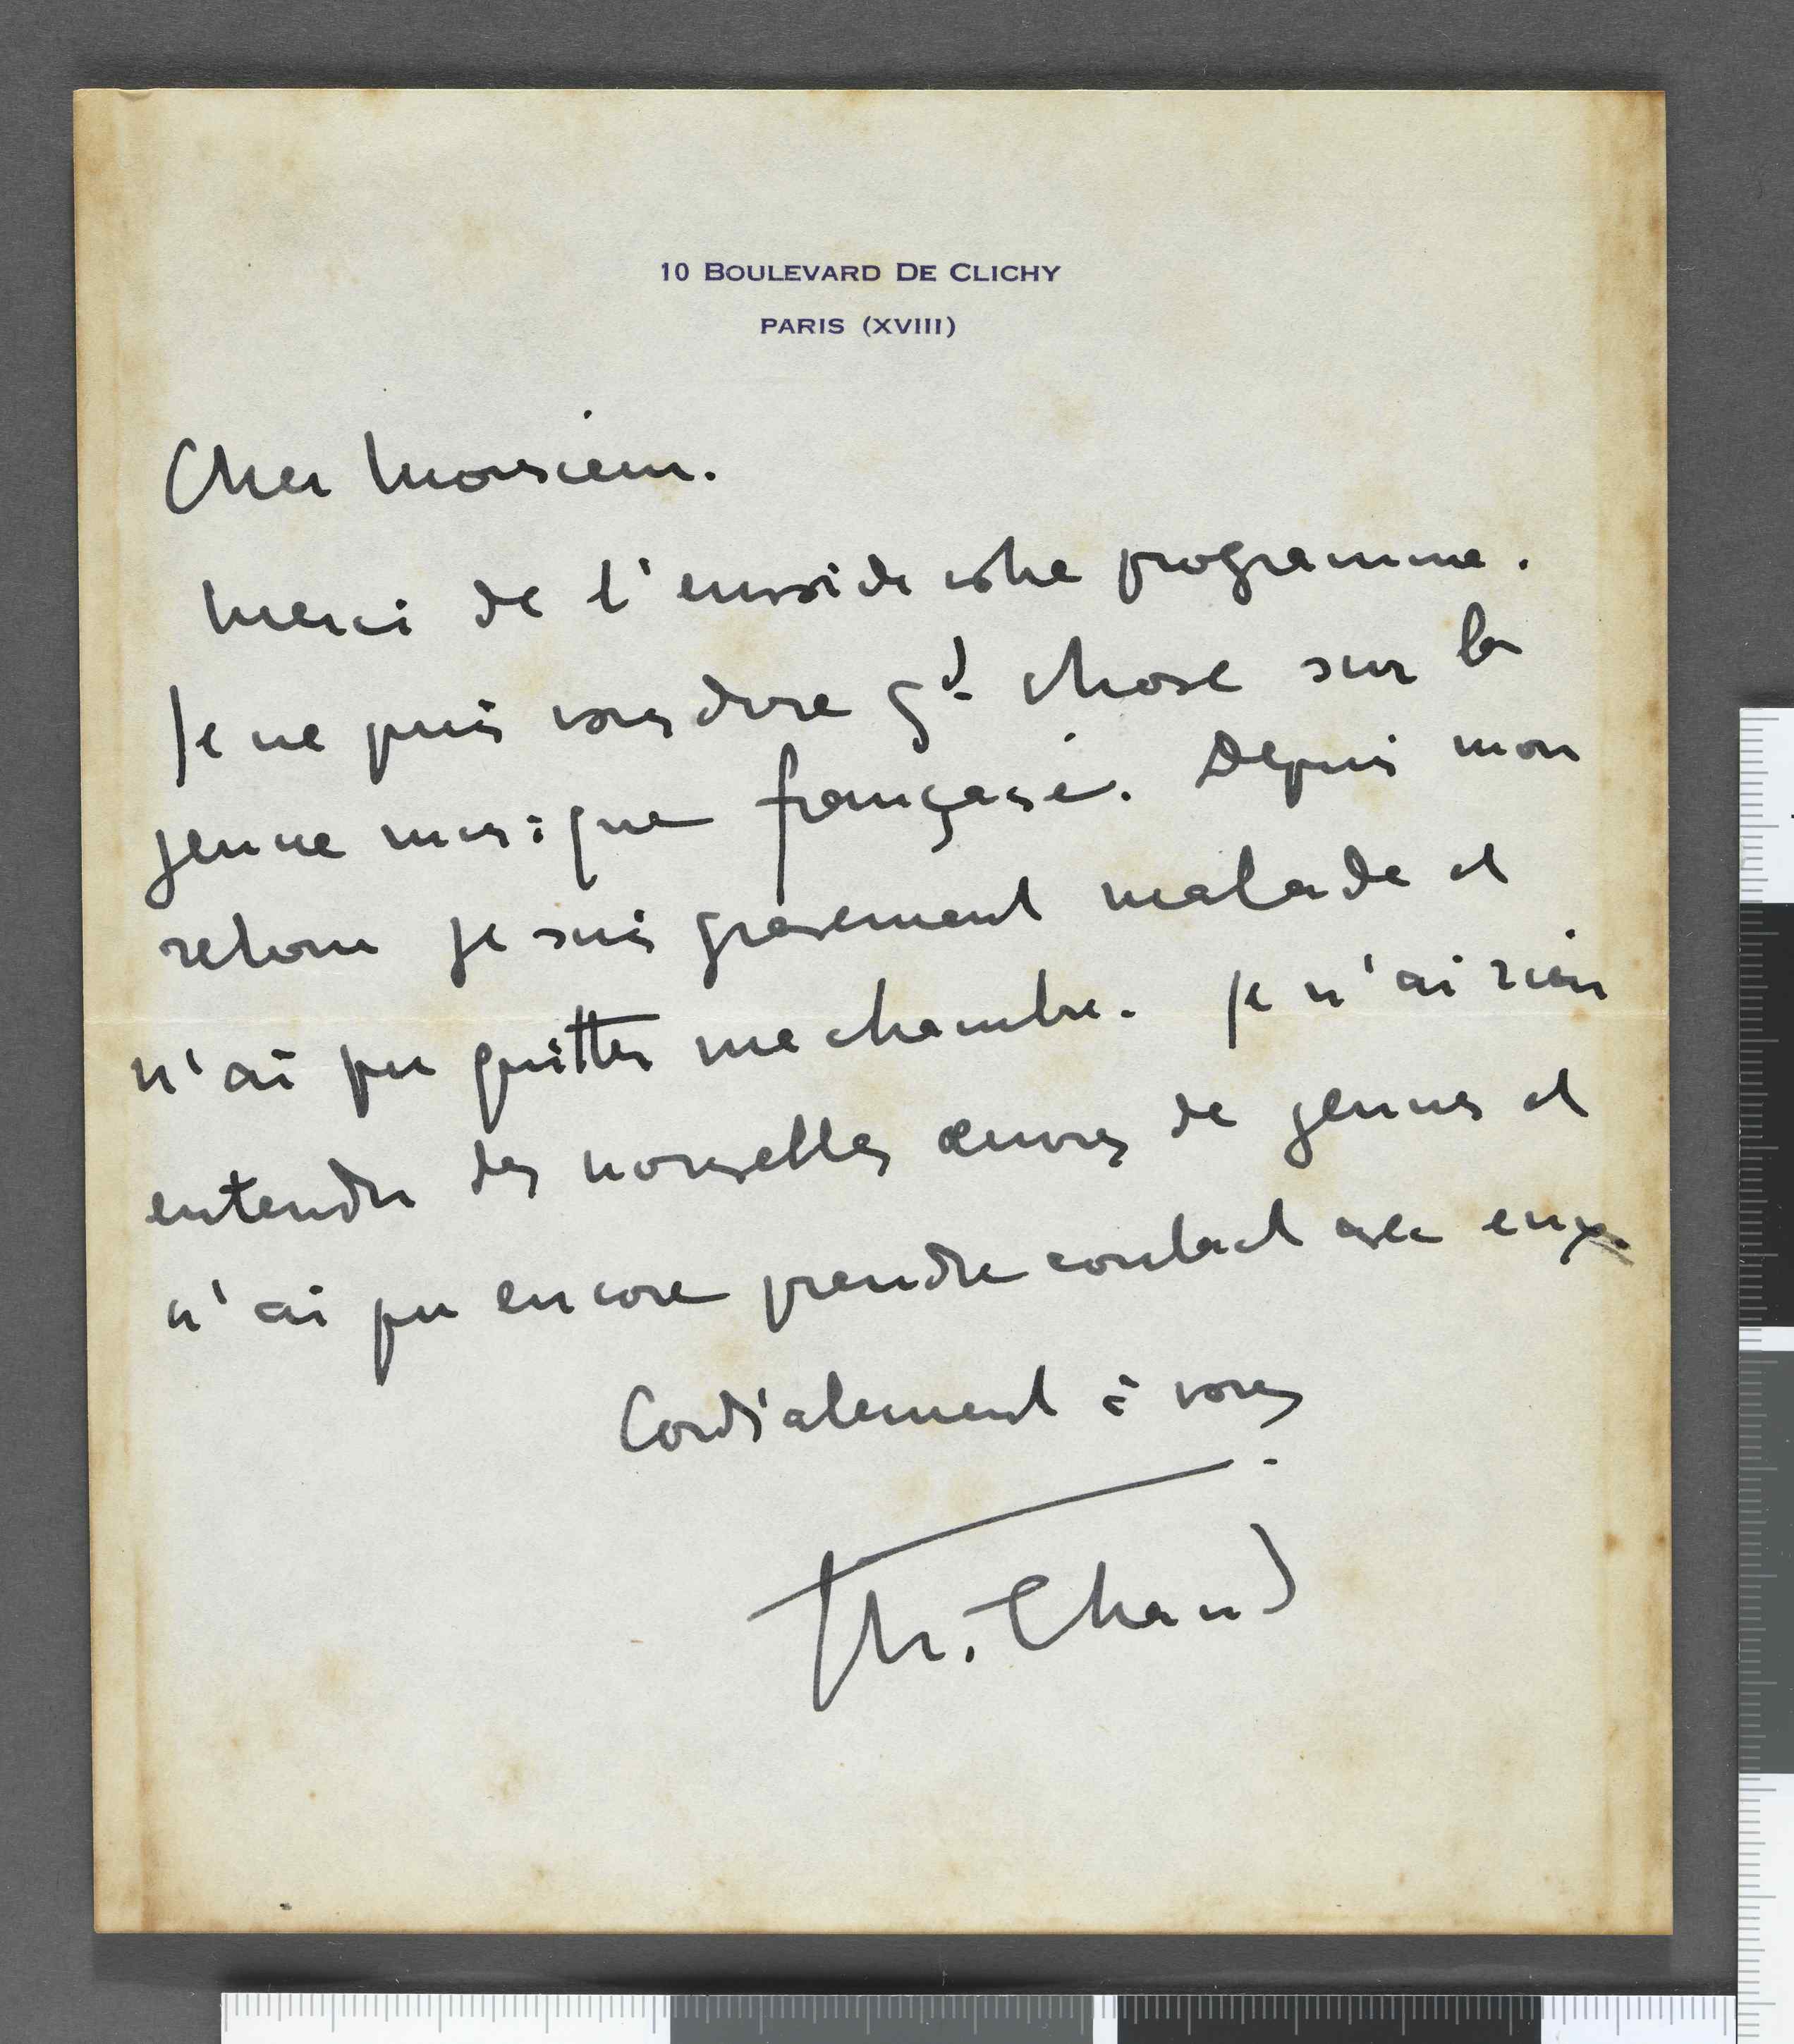 10 BOULEVARD DE CLICHY
PARIS (XVIII)
Cher Monsieur.
Merci de l'envoi de votre programme.
Je ne puis vous dire gd chose sur la
jeune musique française. Depuis mon
retour je suis gravement malade et
n'ai pu quitter ma chambre. Je n'ai rien
entendu des nouvelles œuvres de jeunes et
n'ai pu encore prendre contact avec eux.
Cordialement à vous